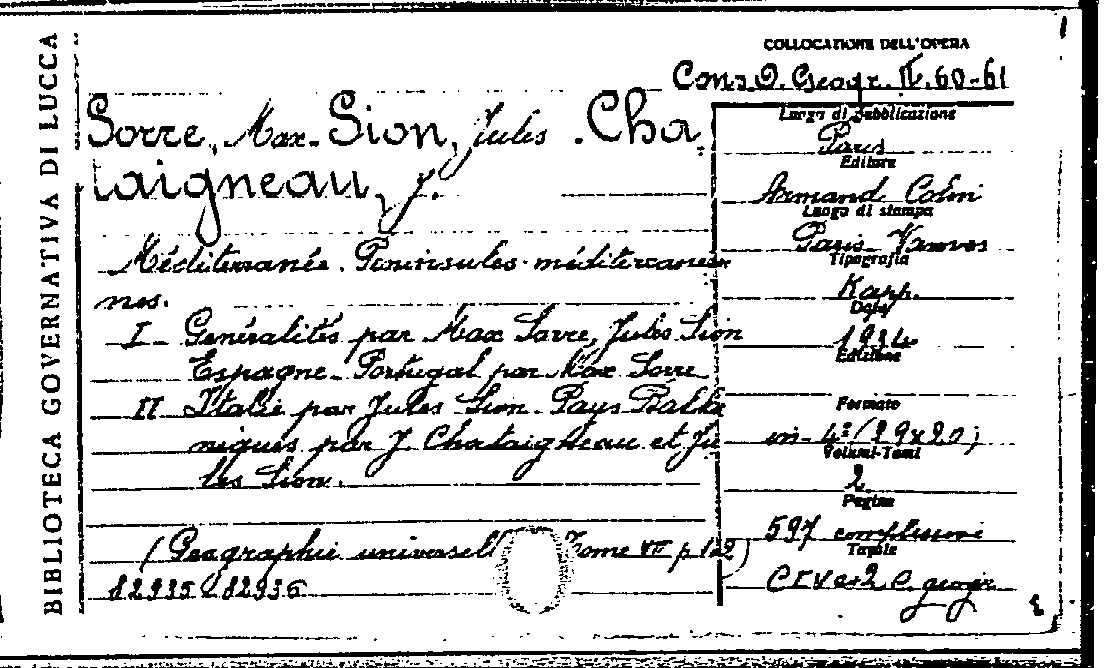 BIBLIOTECA GOVERNATIVA DI LUCCA
COLLOCAZIONE DELL'OPERA
Cons. D. Geogr. II. 60-61
Sorre, Max - Sion, Jules . Cha
taigneau, J.
Méditerranée. Péninsules méditerranéen
nes.
I - Généralités par Max Sorre, Jules Sion
Espagne - Portugal par Max Sorre
II Italie par Jules Sion - Pays Balka
niques par J. Chataigneau et Ju
les Sion.
(Geographie universell Tome VII p 1 e 2)
82935 82936
Luogo di pubblicazione
Paris
Editore
Armand Colin
Luogo di stampa
Paris - Vanves
Tipografia
Kapp.
Data
1934
Edizione
Formato
in-4º (29x20)
Volumi-Tomi
2
Pagine
597 complessive
Tavole
C. geogr